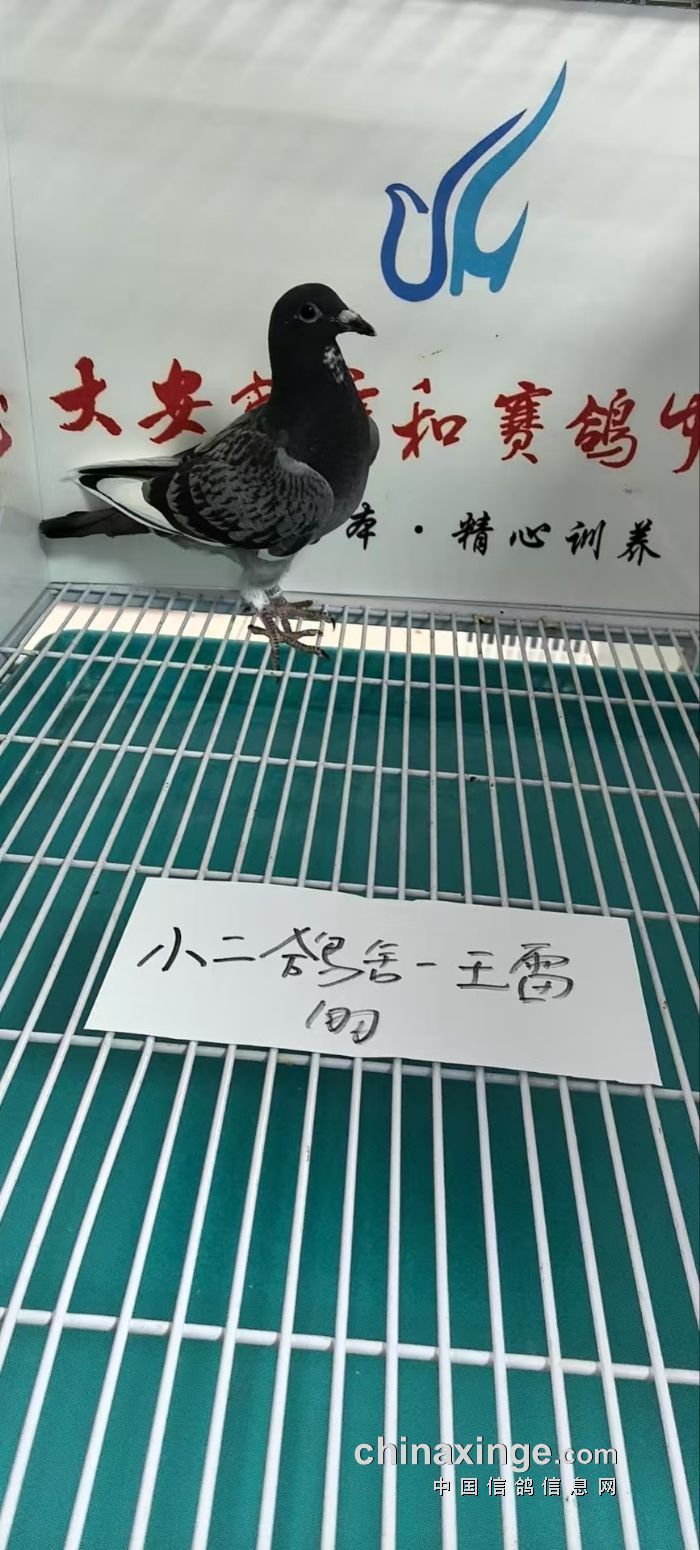 大安
和赛鸽
本·精心训养
小二鸽舍-王雷
chinaxinge.com
中国信鸽信息网